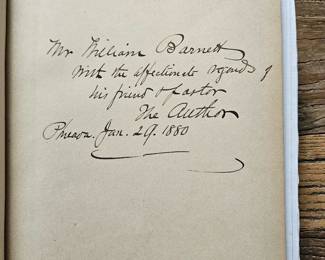 Mr William Barnett
with the affectionate regards of
his friend & pastor
The Author
Jan. 29. 1880